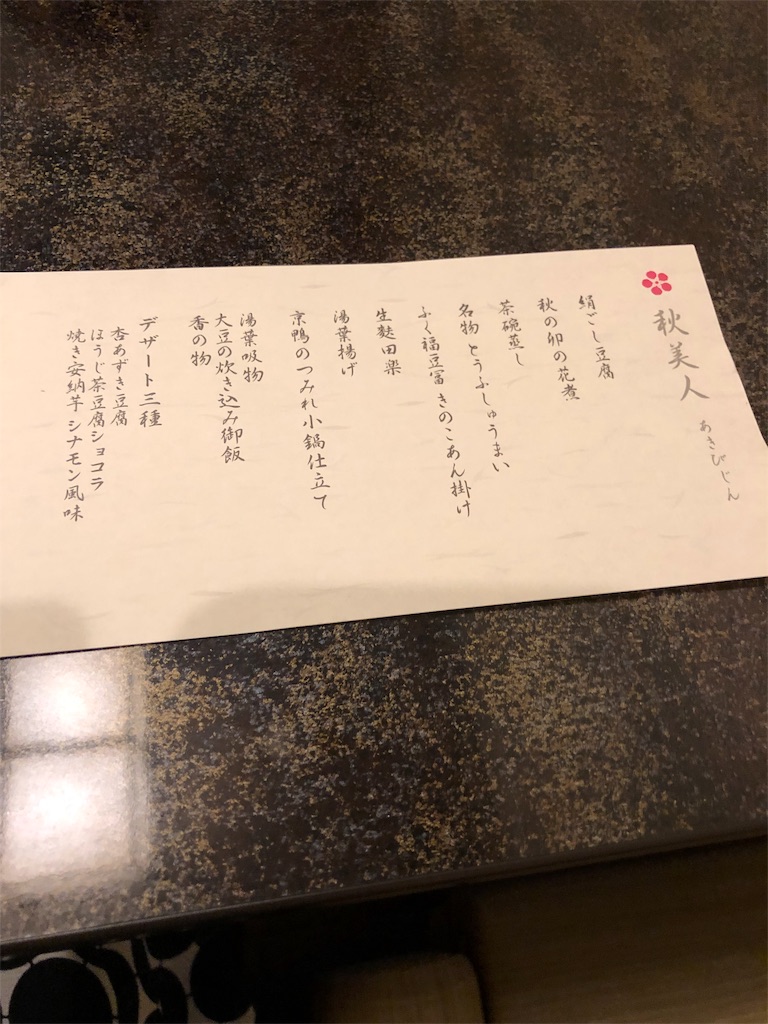 秋美人
あきびじん
絹ごし豆腐
秋の卯の花煮
茶碗蒸し
名物 とうふしゅうまい
ふく福豆冨 きのこあん掛け
生麩田楽
湯葉揚げ
京鴨のつみれ小鍋仕立て
湯葉吸物
大豆の炊き込み御飯
香の物
デザート三種
杏あずき豆腐
ほうじ茶豆腐ショコラ
焼き安納芋 シナモン風味